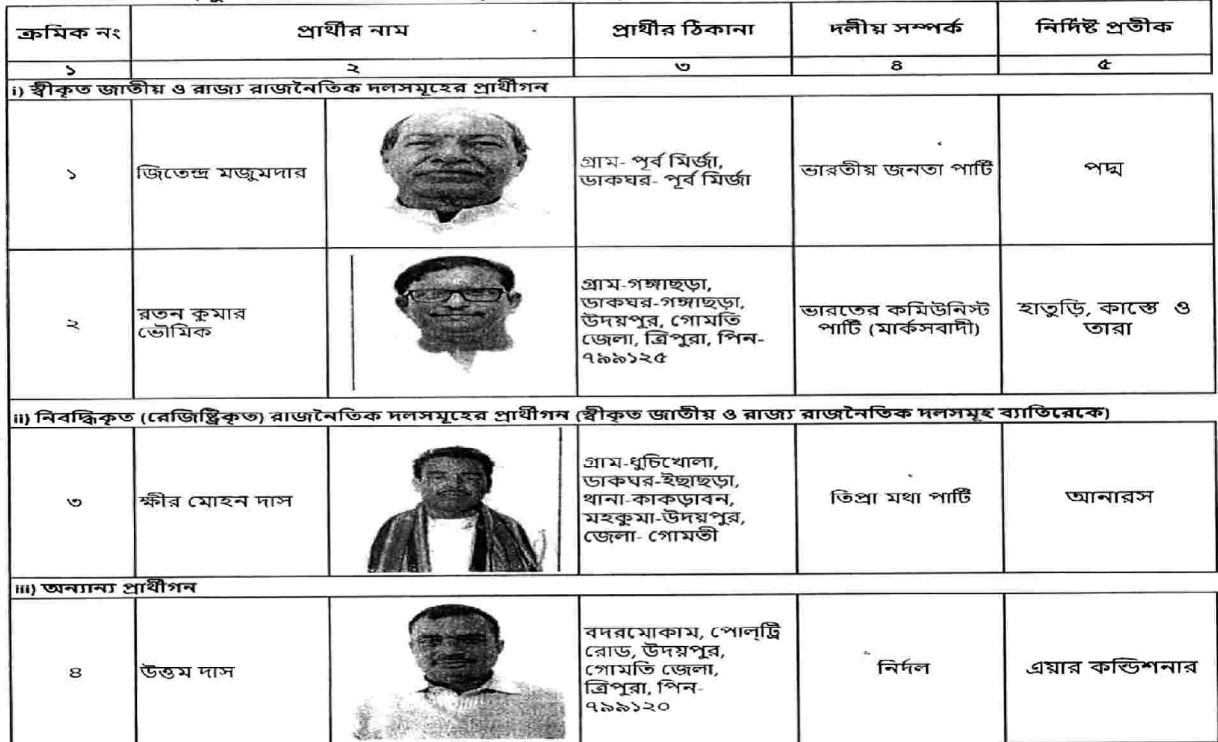 ক্রমিক নং	প্রার্থীর নাম	প্রার্থীর ঠিকানা	দলীয় সম্পর্ক	নির্দিষ্ট প্রতীক
১	২	৩	৪	৫
i) স্বীকৃত জাতীয় ও রাজ্য রাজনৈতিক দলসমূহের প্রার্থীগন
১
জিতেন্দ্র মজুমদার
গ্রাম- পূর্ব মির্জা,
ডাকঘর- পূর্ব মির্জা
ভারতীয় জনতা পার্টি
পদ্ম
২
রতন কুমার
ভৌমিক
গ্রাম-গঙ্গাছড়া,
ডাকঘর-গঙ্গাছড়া,
উদয়পুর, গোমতি
জেলা, ত্রিপুরা, পিন-
৭৯৯১২৫
ভারতের কমিউনিস্ট
পার্টি (মার্কসবাদী)
হাতুড়ি, কাস্তে ও
তারা
ii) নিবদ্ধিকৃত (রেজিষ্ট্রিকৃত) রাজনৈতিক দলসমূহের প্রার্থীগন (স্বীকৃত জাতীয় ও রাজ্য রাজনৈতিক দলসমূহ ব্যাতিরেকে)
৩
ক্ষীর মোহন দাস
গ্রাম-ধুচিখোলা,
ডাকঘর-ইছাছড়া,
থানা-কাকড়াবন,
মহকুমা-উদয়পুর,
জেলা- গোমতী
তিপ্রা মথা পার্টি
আনারস
iii) অন্যান্য প্রার্থীগন
৪
উত্তম দাস
বদরমোকাম, পোল্ট্রি
রোড, উদয়পুর,
গোমতি জেলা,
ত্রিপুরা, পিন-
৭৯৯১২০
নির্দল
এয়ার কন্ডিশনার